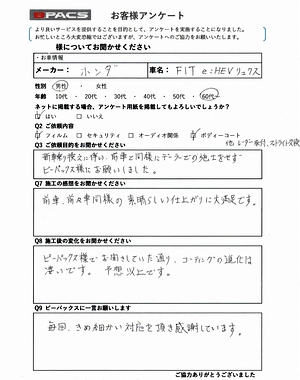 BPACS お客様アンケート
より良いサービスを提供することを目的として、アンケートを実施することになりました。
お忙しいところ大変恐縮ではございますが、アンケートへのご協力をお願いします。
様についてお聞かせください
・お車情報
メーカー： ホンダ 車名： FIT e:HEV リュクス
性別 男性 ・ 女性
年齢 10代 ・ 20代 ・ 30代 ・ 40代 ・ 50代 ・ 60代
ネットに掲載する場合、アンケート用紙を掲載してもよろしいでしょうか？
はい □いいえ
Q2 ご依頼内容
フィルム □セキュリティ □オーディオ関係 ボディーコート
Q3 ご依頼目的をお聞かせください
他、レーダー取付、
新車の購入に伴い、前車と同様にディーラーでの施工をせず
ビーパックス様にお願いしました。
Q7 施工の感想をお聞かせください
前車、前々車同様の素晴らしい仕上がりに大満足です。
Q8 施工後の変化をお聞かせください
ビーパックス様でお聞きしていた通り、コーティングの進化は
凄いです。 予想以上です。
Q9 ビーパックスに一言お願いします
毎回、きめ細かい対応を頂き感謝しています。
ご協力ありがとうございました